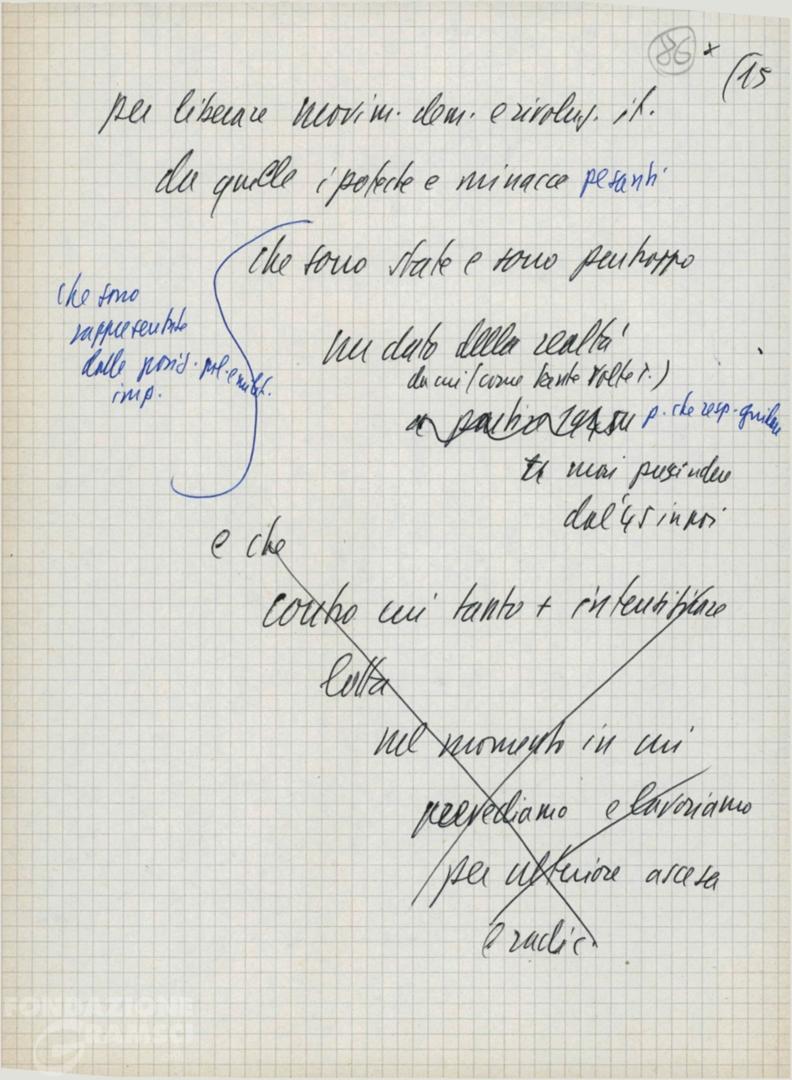 86 x (15
per liberare movim. dem. e rivoluz. it.
da quelle ipoteche e minacce pesanti
che sono state e sono purtroppo
che sono
rappresentate
dalle posiz. pol. e milit.
imp.
un dato della realtà
da cui (come tante volte r.)
a partire 1945 un p. che resp. guidare
mai prescindere
dal '45 in poi
e che
contro cui tanto + intensificare
lotta
nel momento in cui
prevediamo e lavoriamo
per ulteriore ascesa
e radic.
FONDAZIONE
GRAMSCI